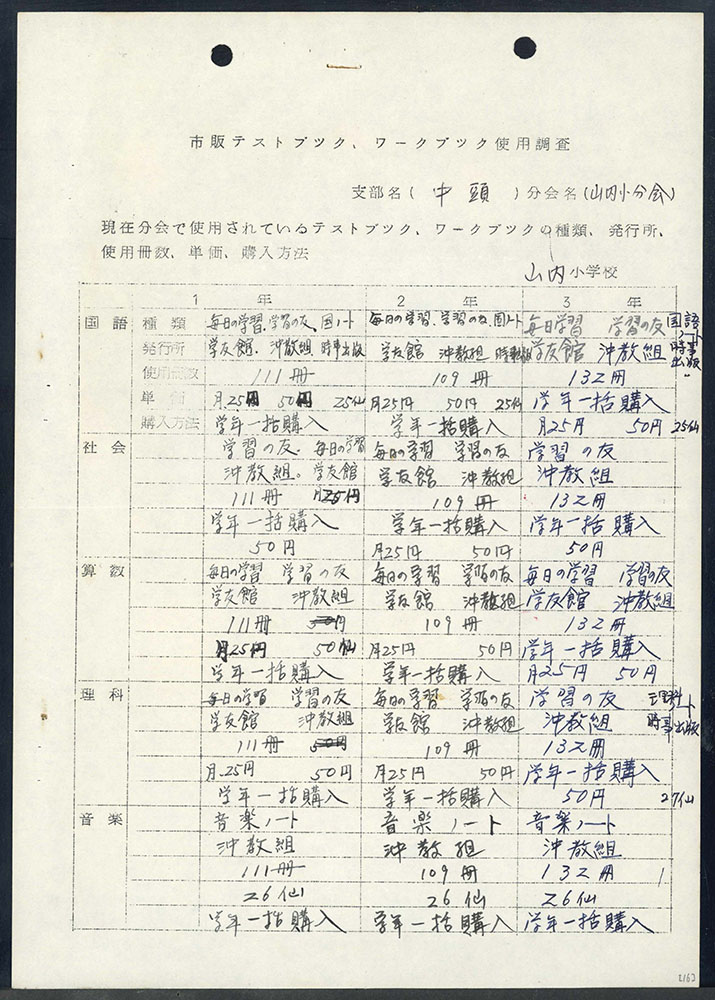 市販テストブツク、ワークブツク使用調査
支部名( 中 頭 )分会名(山内小分会)
現在分会で使用されているテストブツク、ワークブツクの種類、発行所、
使用冊数、単価、購入方法
山内小学校
1 年 2 年 3 年
国語 種類 毎日の学習、学習の友、国ノート 毎日の学習、学習の友、国ノート 毎日学習 学習の友 国語ノート
発行所 学友館、沖教組 時事出版 学友館 沖教組 時事出版 学友館 沖教組 時事出版
使用冊数 111冊 109冊 132冊
単価 月25円 50円 25仙 月25円 50円 25仙 学年一括購入
購入方法 学年一括購入 学年一括購入 月25円 50円 25仙
社会 学習の友、毎日の学習 毎日の学習 学習の友 学習の友
沖教組。学友館 学友館 沖教組 沖教組
111冊 月25円 109冊 132冊
学年一括購入 学年一括購入 学年一括購入
50円 月25円 50円 50円
算数 毎日の学習 学習の友 毎日の学習 学習の友 毎日の学習 学習の友
学友館 沖教組 学友館 沖教組 学友館 沖教組
111冊 50円 109冊 132冊
月25円 50仙 月25円 50円 学年一括購入
学年一括購入 学年一括購入 月25円 50円
理科 毎日の学習 学習の友 毎日の学習 学習の友 学習の友 理科ノート
学友館 沖教組 学友館 沖教組 沖教組 時事出版
111冊 50円 109冊 132冊
月25円 50円 月25円 50円 学年一括購入
学年一括購入 学年一括購入 50円 27仙
音楽 音楽ノート 音楽ノート 音楽ノート
沖教組 沖教組 沖教組
111冊 109冊 132冊
26仙 26仙 26仙
学年一括購入 学年一括購入 学年一括購入